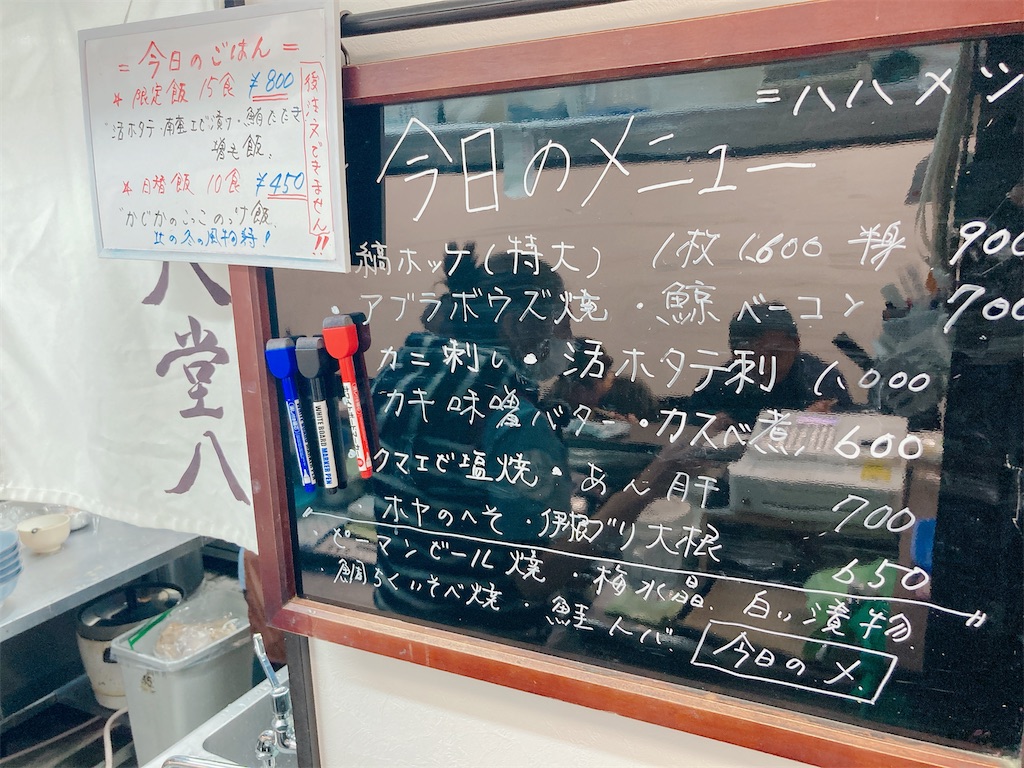 = 今日のごはん =
* 限定飯 15食 ¥800
活ホタテ・南蛮エビ漬け・鮪たたき
増も飯
* 日替飯 10食 ¥450
"かじかのごっこのっけ飯
北の冬の風物詩!
後注文できません!!
八堂八
WHITE BOARD MARKER PEN
=ハハメツ
今日のメニュー
縞ホッケ(特大) 1枚 1,600 半身 900
・アブラボウズ焼・鯨ベーコン 700
カニ刺し・活ホタテ刺 1,000
カキ味噌バター・カスベ煮 600
クマエビ塩焼・あん肝 700
・ホヤのへそ・伊根ブリ大根 650
・ピーマンビール焼・梅水晶. 白い漬物
・鯛ちくいそべ焼・鮭とば
今日の〆